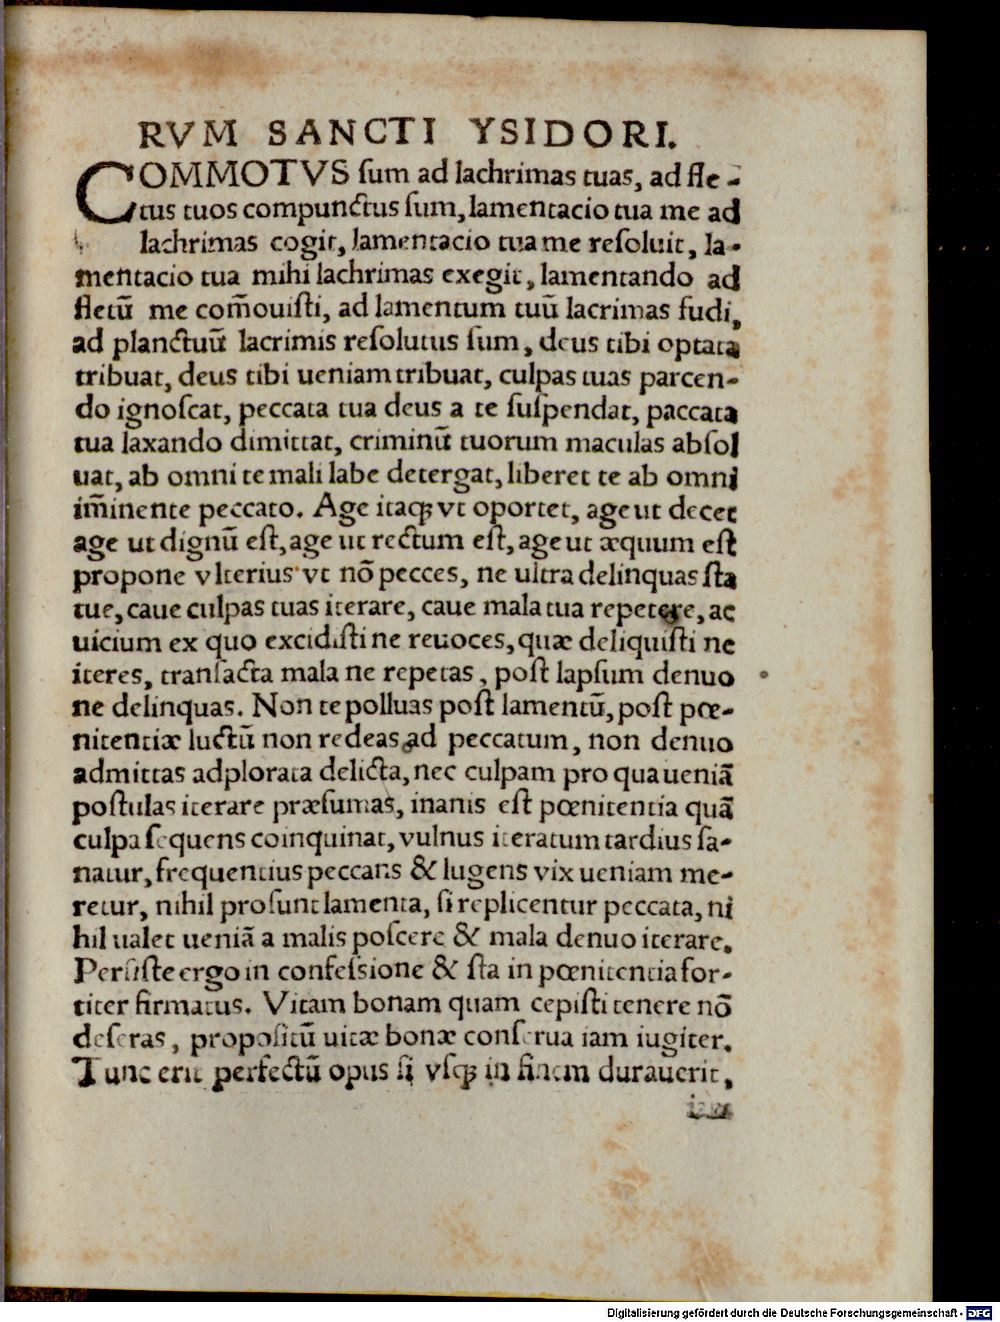 RVM SANCTI YSIDORI.
COMMOTVS ſum ad lachrimas tuas, ad fle-
tus tuos compunctus ſum, lamentacio tua me ad
lachrimas cogit, lamentacio tua me reſoluit, la-
mentacio tua mihi lachrimas exegit, lamentando ad
fletū me com̄ouiſti, ad lamentum tuū lacrimas fudi,
ad planctuū lacrimis reſolutus ſum, deus tibi optata
tribuat, deus tibi ueniam tribuat, culpas tuas parcen-
do ignoſcat, peccata tua deus a te ſuſpendat, paccata
tua laxando dimittat, criminū tuorum maculas abſol
uat, ab omni te mali labe detergat, liberet te ab omni
im̄inente peccato. Age itaqꝫ vt oportet, age ut decet
age ut dignū eſt, age ut rectum eſt, age ut æquum eſt
propone vlterius vt nō pecces, ne ultra delinquas ſta
tue, caue culpas tuas iterare, caue mala tua repetere, ac
uicium ex quo excidiſti ne reuoces, quæ deliquiſti ne
iteres, tranſacta mala ne repetas, poſt lapſum denuo
ne delinquas. Non te polluas poſt lamentū, poſt pœ-
nitentiæ luctū non redeas ad peccatum, non denuo
admittas adplorata delicta, nec culpam pro qua ueniā
poſtulas iterare præſumas, inanis eſt pœnitentia quā
culpa ſequens coinquinat, vulnus iteratum tardius ſa-
natur, frequentius peccans & lugens vix ueniam me-
retur, nihil proſunt lamenta, ſi replicentur peccata, ni
hil ualet ueniā a malis poſcere & mala denuo iterare.
Perſiſte ergo in confeſsione & ſta in pœnitentia for-
titer firmatus. Vitam bonam quam cepiſti tenere nō
deſeras, propoſitū uitæ bonæ conſerua iam iugiter.
Tunc erit perfectū opus ſi vſqꝫ in finem durauerit,
Digitalisierung gefördert durch die Deutsche Forschungsgemeinschaft - DFG